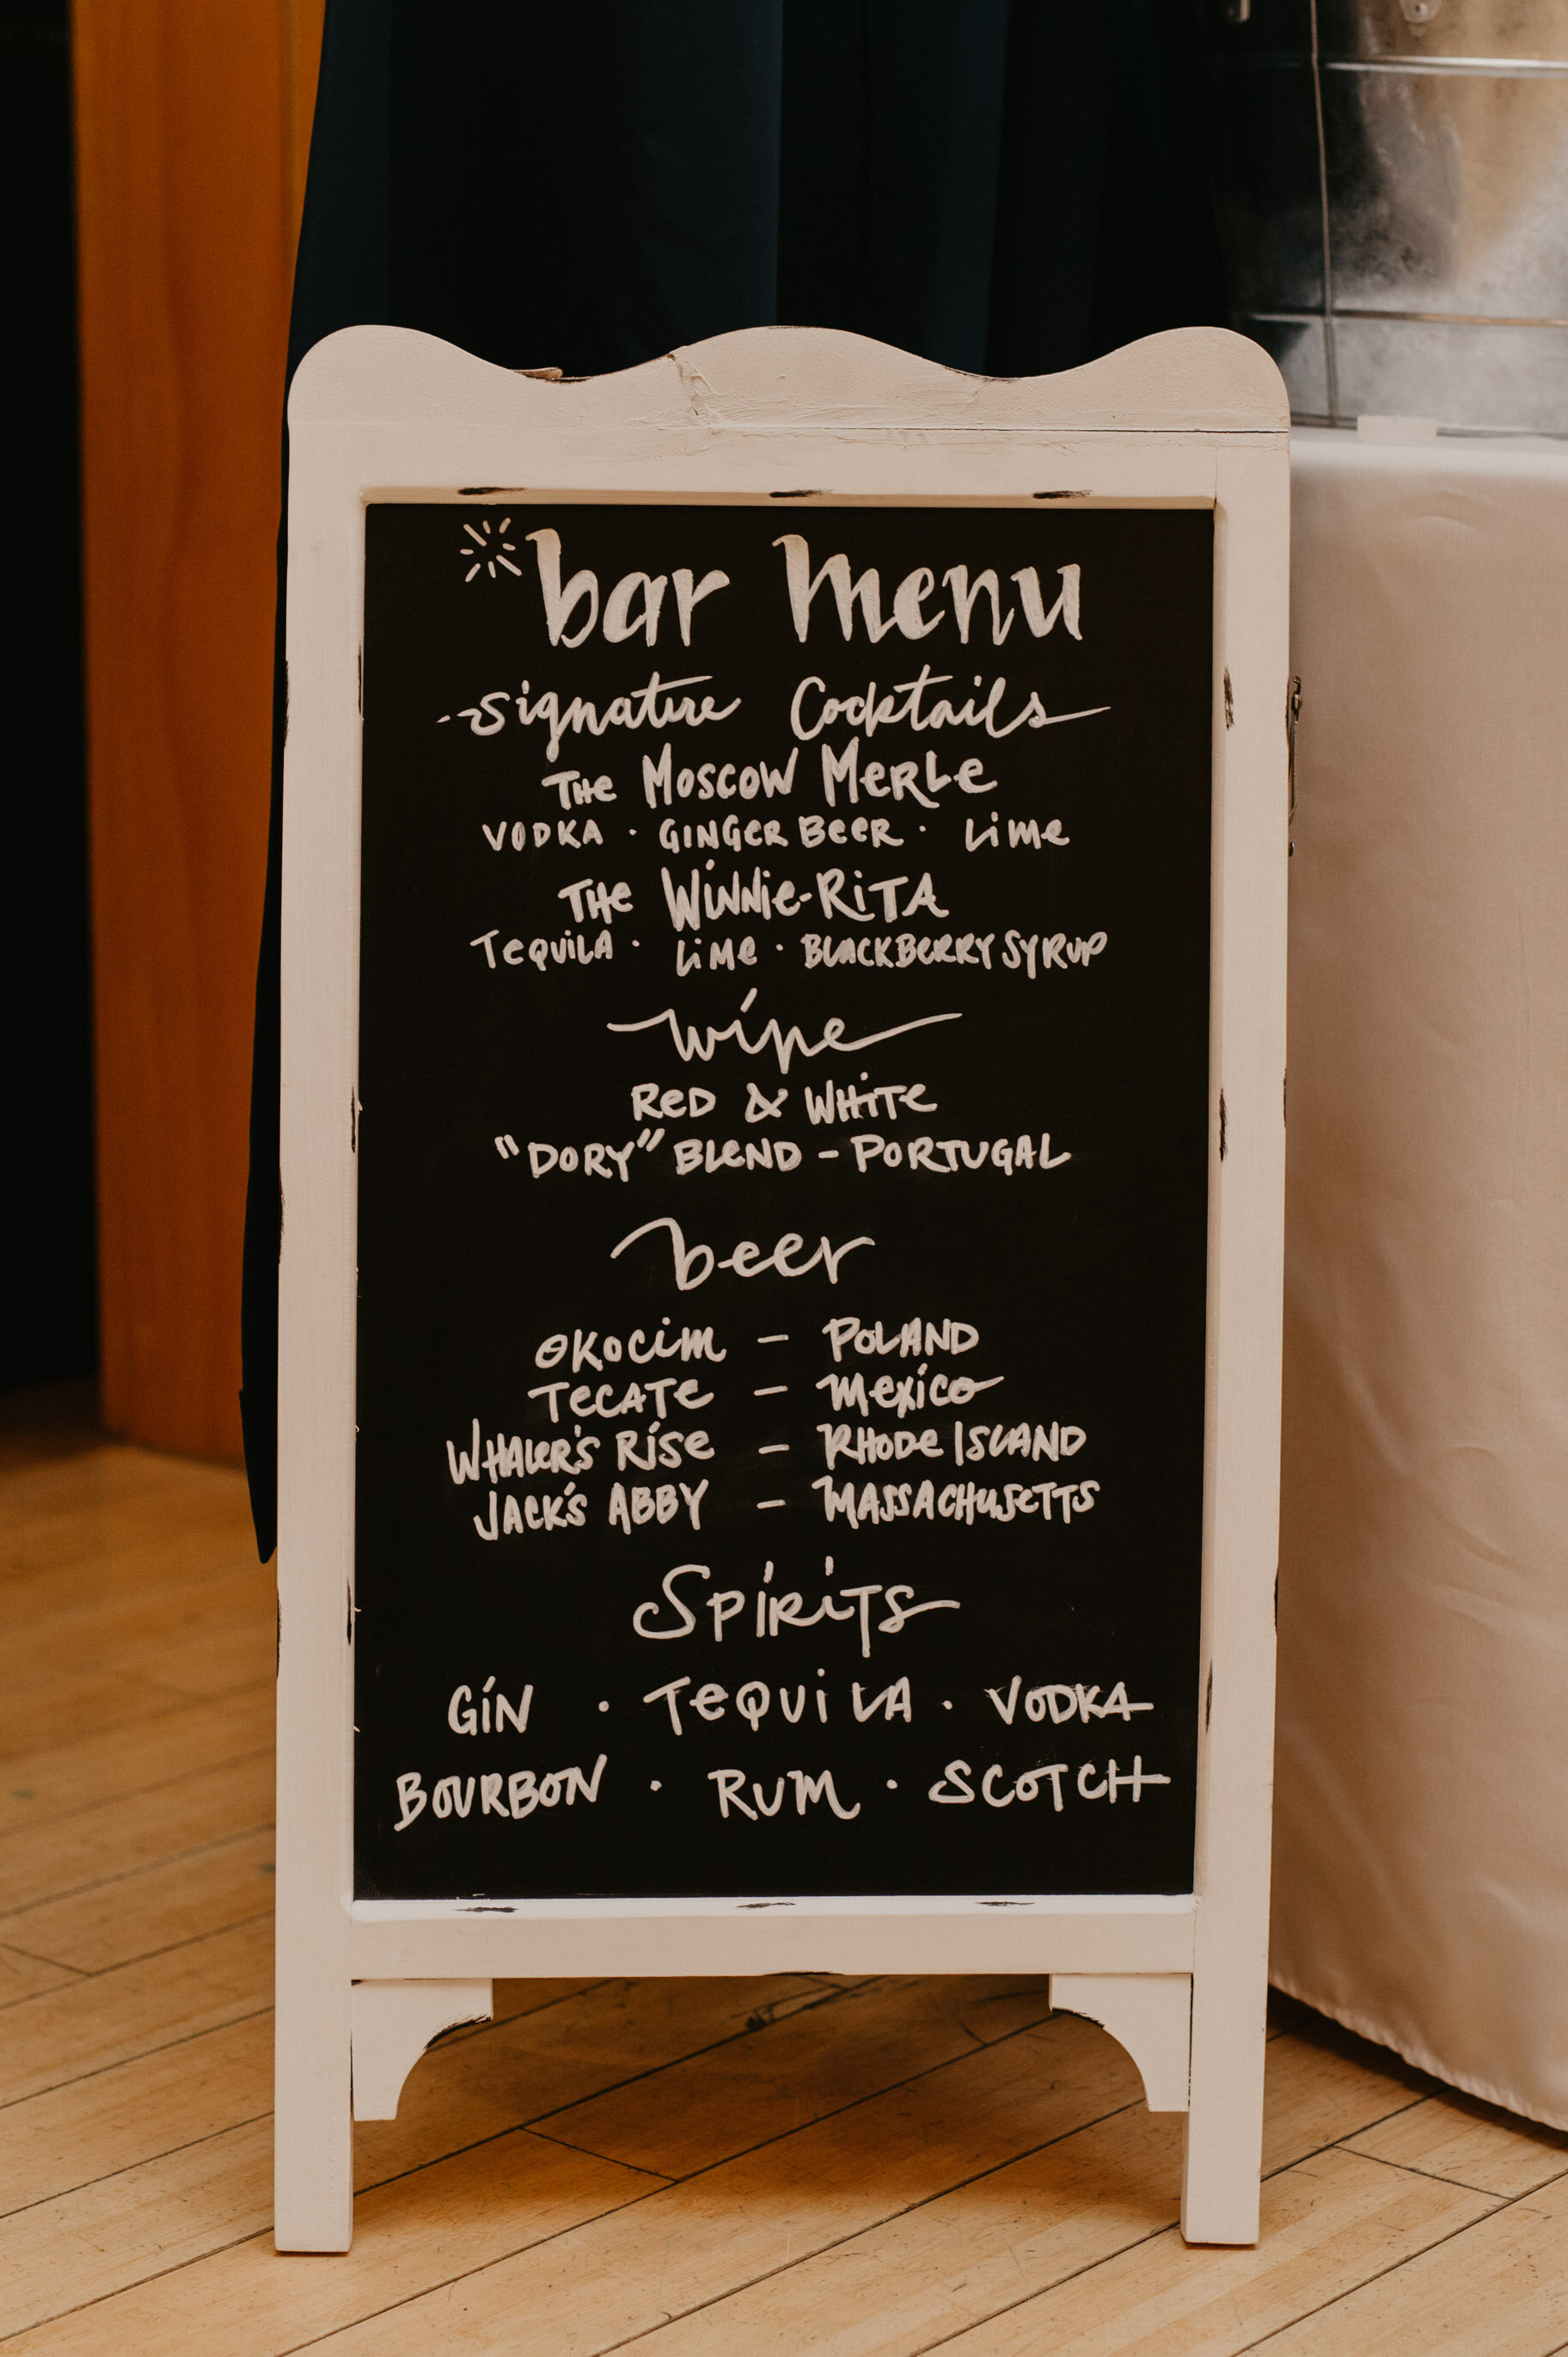 bar menu
Signature Cocktails
THE MOSCOW MERLE
VODKA · GINGER BEER · LIME
THE WINNIE-RITA
TEQUILA · LIME · BLACKBERRY SYRUP
wine
RED & WHITE
"DORY" BLEND - PORTUGAL
beer
OKOCIM - POLAND
TECATE - MEXICO
WHALER'S RISE - RHODE ISLAND
JACK'S ABBY - MASSACHUSETTS
SPIRITS
GIN · TEQUILA · VODKA
BOURBON · RUM · SCOTCH